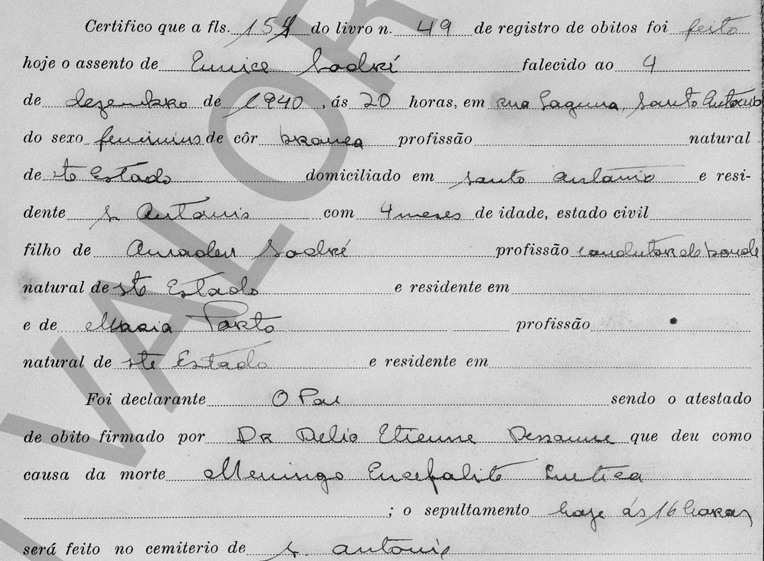 Certifico que a fls. 15 do livro n. 49 de registro de obitos foi feito
hoje o assento de Eunice Sodré falecido ao 4
de dezembro de 1940, ás 20 horas, em rua Laguna, Santo Antonio
do sexo feminino de côr branca profissão natural
de ste Estado domiciliado em Santo Antonio e resi-
dente S. Antonio com 4 meses de idade, estado civil
filho de Amadeu Sodré profissão condutor de bonde
natural de ste Estado e residente em
e de Maria Porto profissão
natural de ste Estado e residente em
Foi declarante O Pai sendo o atestado
de obito firmado por Dr Delio Etienne Dessaune que deu como
causa da morte Meningo Encefalite Luetica
; o sepultamento hoje ás 16 horas
será feito no cemiterio de S. Antonio
VALOR